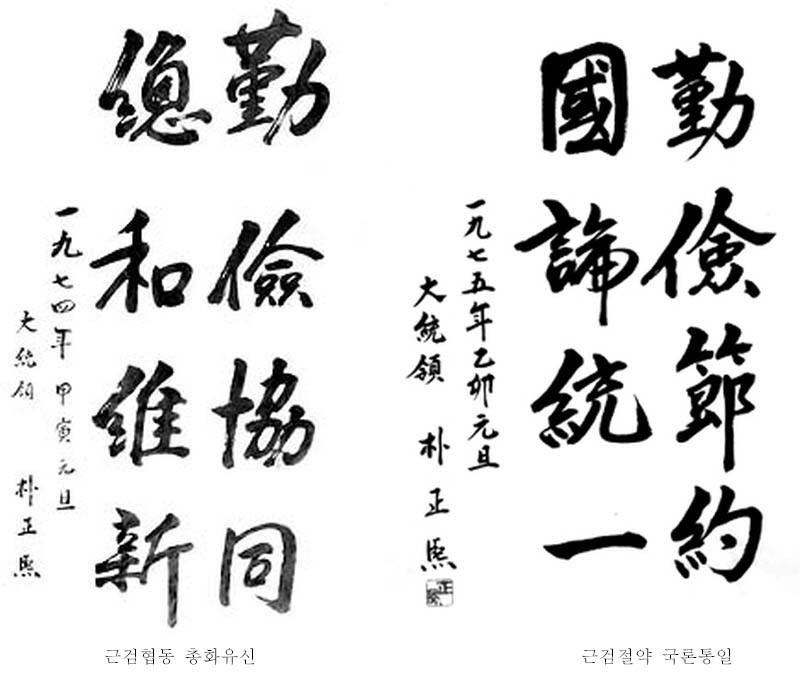 勤儉協同
總和維新
一九七四年 甲寅元旦
大統領 朴正熙
근검협동 총화유신
勤儉節約
國論統一
一九七五年乙卯元旦
大統領 朴正熙
근검절약 국론통일